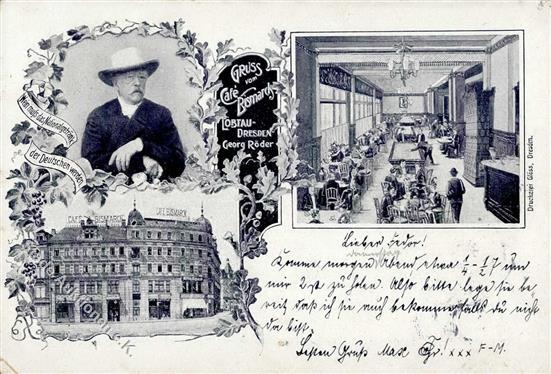 Wein muß das Nationalgetränk
der Deutschen werden
GRUSS
vom
Café
Bismarck
LÖBTAU-
DRESDEN
Georg Röder
CAFÉ BISMARCK
CAFE BISMARCK
Druckerei Glöss, Dresden.
Lieber Fedor!
Komme morgen Abend etwa 1/4 - 1/2 7 um
mir 2 M zu holen. Also bitte lege sie be-
reit daß ich sie auch bekomme falls du nicht
da bist.
Besten Gruß Max xxx F-M.